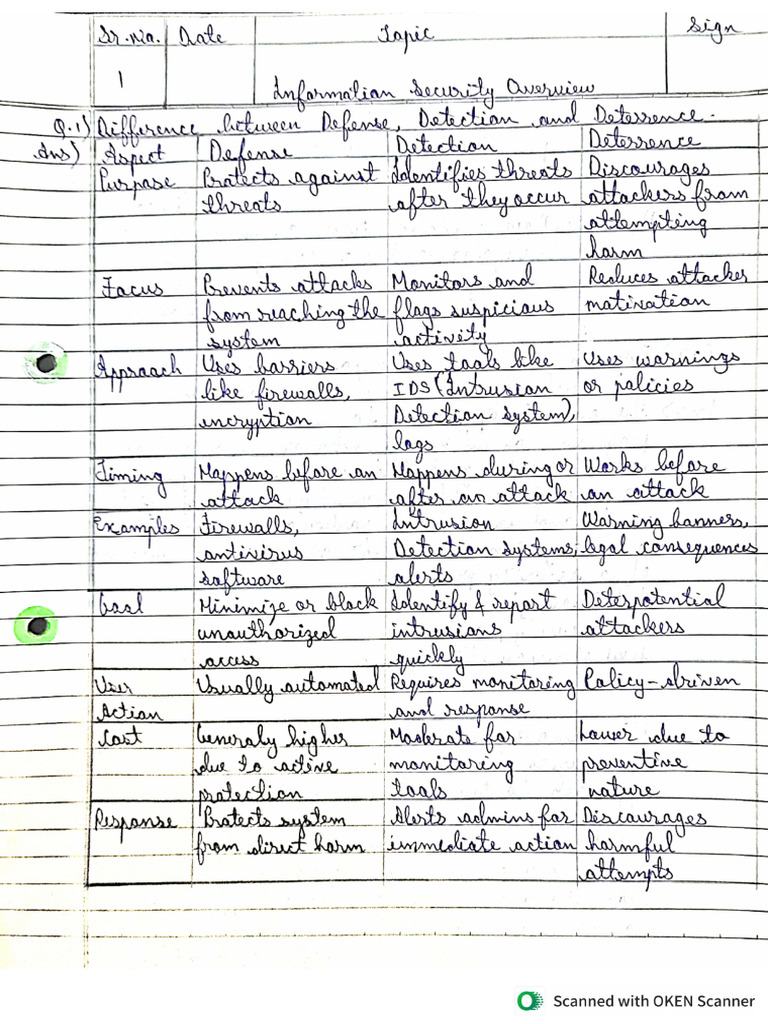 Sr.No. Date Topic Sign
1 Information Security Overview
Q.1) Difference between Defense, Detection and Deterrence.
Ans) Aspect Defense Detection Deterrence
Purpose Protects against Identifies threats Discourages
threats after they occur attackers from
attempting
harm
Focus Prevents attacks Monitors and Reduces attacker
from reaching the flags suspicious motivation
system activity
Approach Uses barriers Uses tools like Uses warnings
like firewalls, IDS (Intrusion or policies
encryption Detection system),
logs
Timing Happens before an Happens during or Works before
attack after an attack an attack
Examples Firewalls, Intrusion Warning banners,
antivirus Detection systems, legal consequences
software alerts
Goal Minimize or block Identify & report Deter potential
unauthorized intrusions attackers
access quickly
User Usually automated Requires monitoring Policy-driven
Action and response
Cost Generaly higher Moderate for Lower due to
due to active monitoring preventive
protection tools nature
Response Protects system Alerts admins for Discourages
from direct harm immediate action harmful
attempts
Scanned with OKEN Scanner